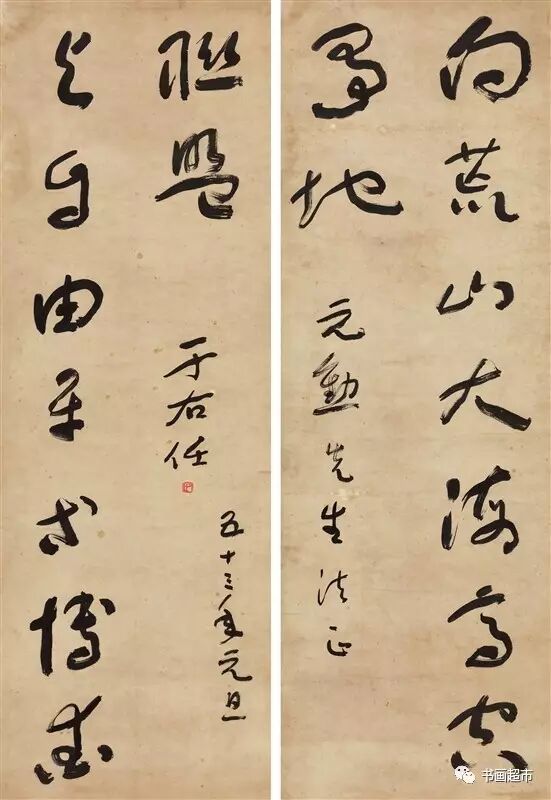 向荒山大海高空
爭地
元勳先生法正
與自由平等博愛
聯盟
于右任
五十三年元旦
书画超市